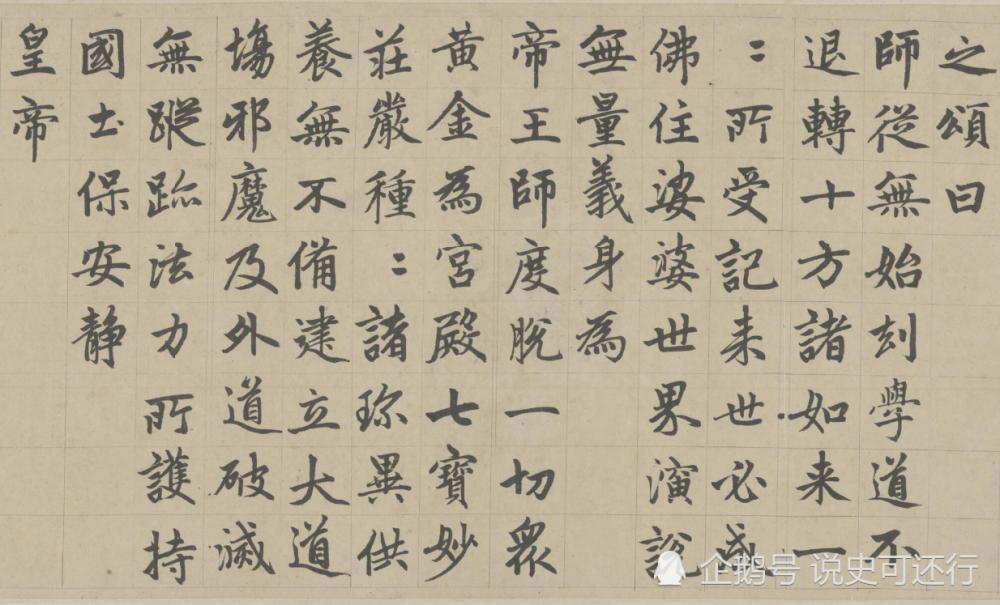 之頌曰
師從無始刦學道不
退轉十方諸如来一
：所受記来世必成
佛住娑婆世界演說
無量義身為
帝王師度脫一切衆
黄金為宮殿七寶妙
莊嚴種：諸珎異供
養無不備建立大道
塲邪魔及外道破滅
無蹤跡法力所護持
國土保安靜
皇帝
企鹅号 说史可还行